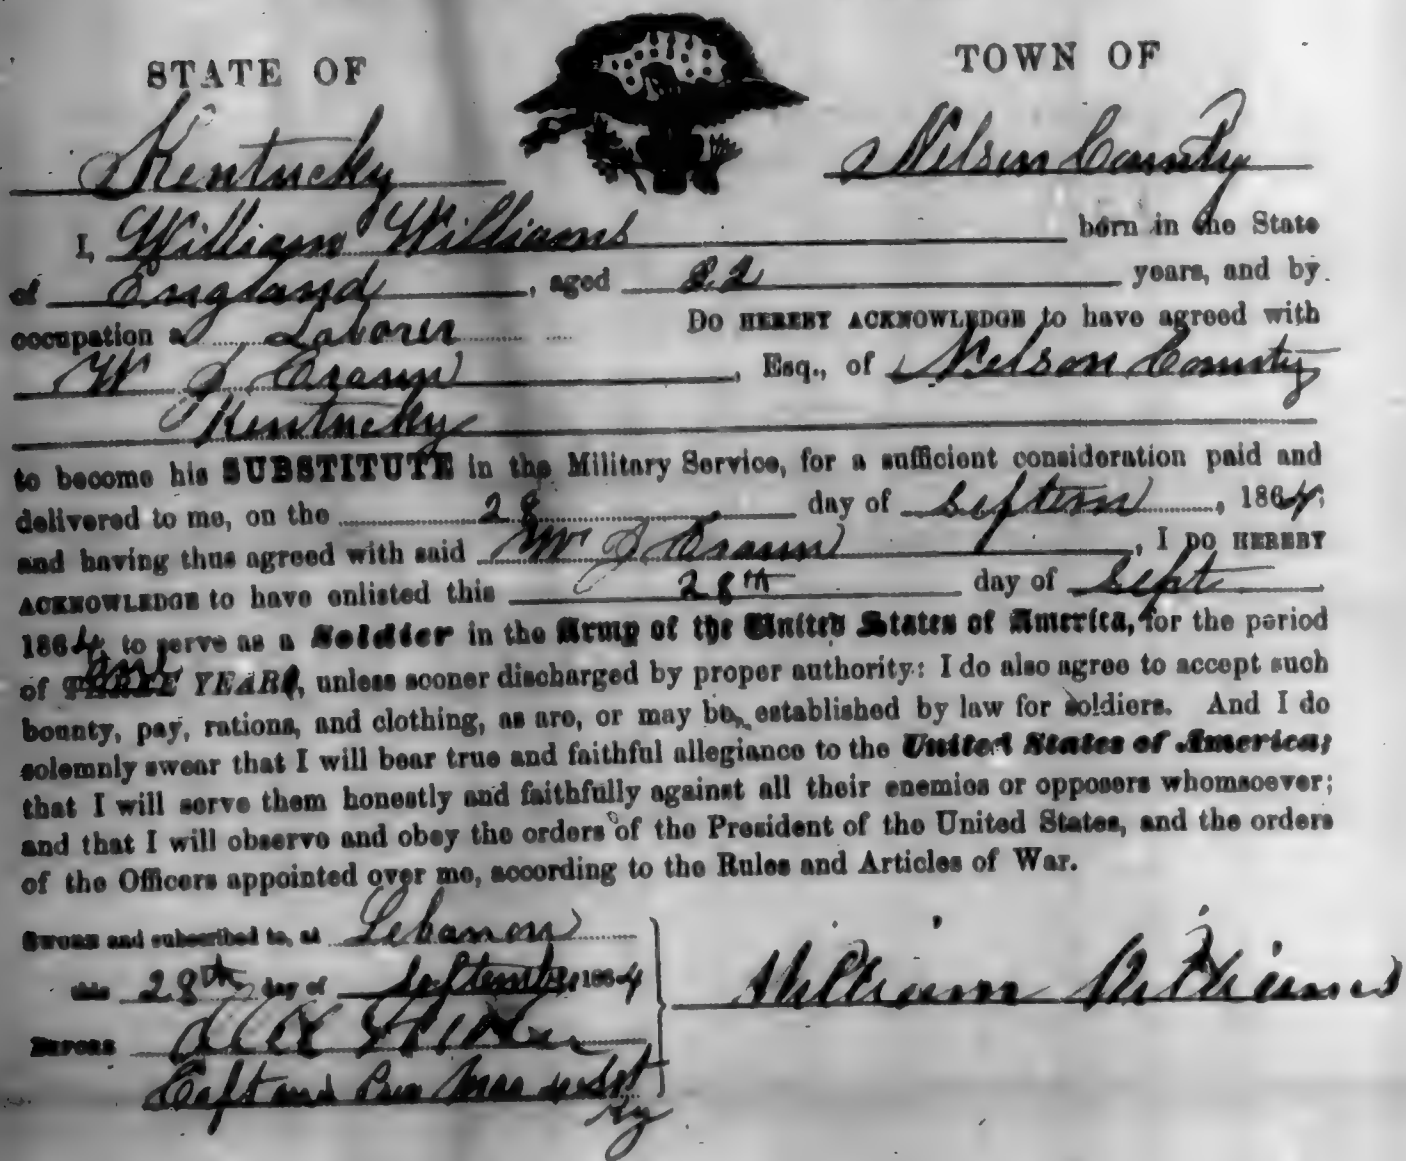 STATE OF
TOWN OF
Kentucky
Nelson County
I, William Williams born in the State
of England, aged 22 years, and by
occupation a Laborer Do HEREBY ACKNOWLEDGE to have agreed with
W J Esq., of Nelson County
Kentucky
to become his SUBSTITUTE in the Military Service, for a sufficient consideration paid and
delivered to me, on the 28 day of Septem, 1864;
and having thus agreed with said W J, I DO HEREBY
ACKNOWLEDGE to have enlisted this 28th day of Sept
1864 to serve as a Soldier in the Army of the United States of America, for the period
of one YEAR, unless sooner discharged by proper authority: I do also agree to accept such
bounty, pay, rations, and clothing, as are, or may be, established by law for soldiers. And I do
solemnly swear that I will bear true and faithful allegiance to the United States of America;
that I will serve them honestly and faithfully against all their enemies or opposers whomsoever;
and that I will observe and obey the orders of the President of the United States, and the orders
of the Officers appointed over me, according to the Rules and Articles of War.
SWORN and subscribed to, at Lebanon
this 28th day of September 1864
William Williams
BEFORE
Capt and Pro Mar
Ky